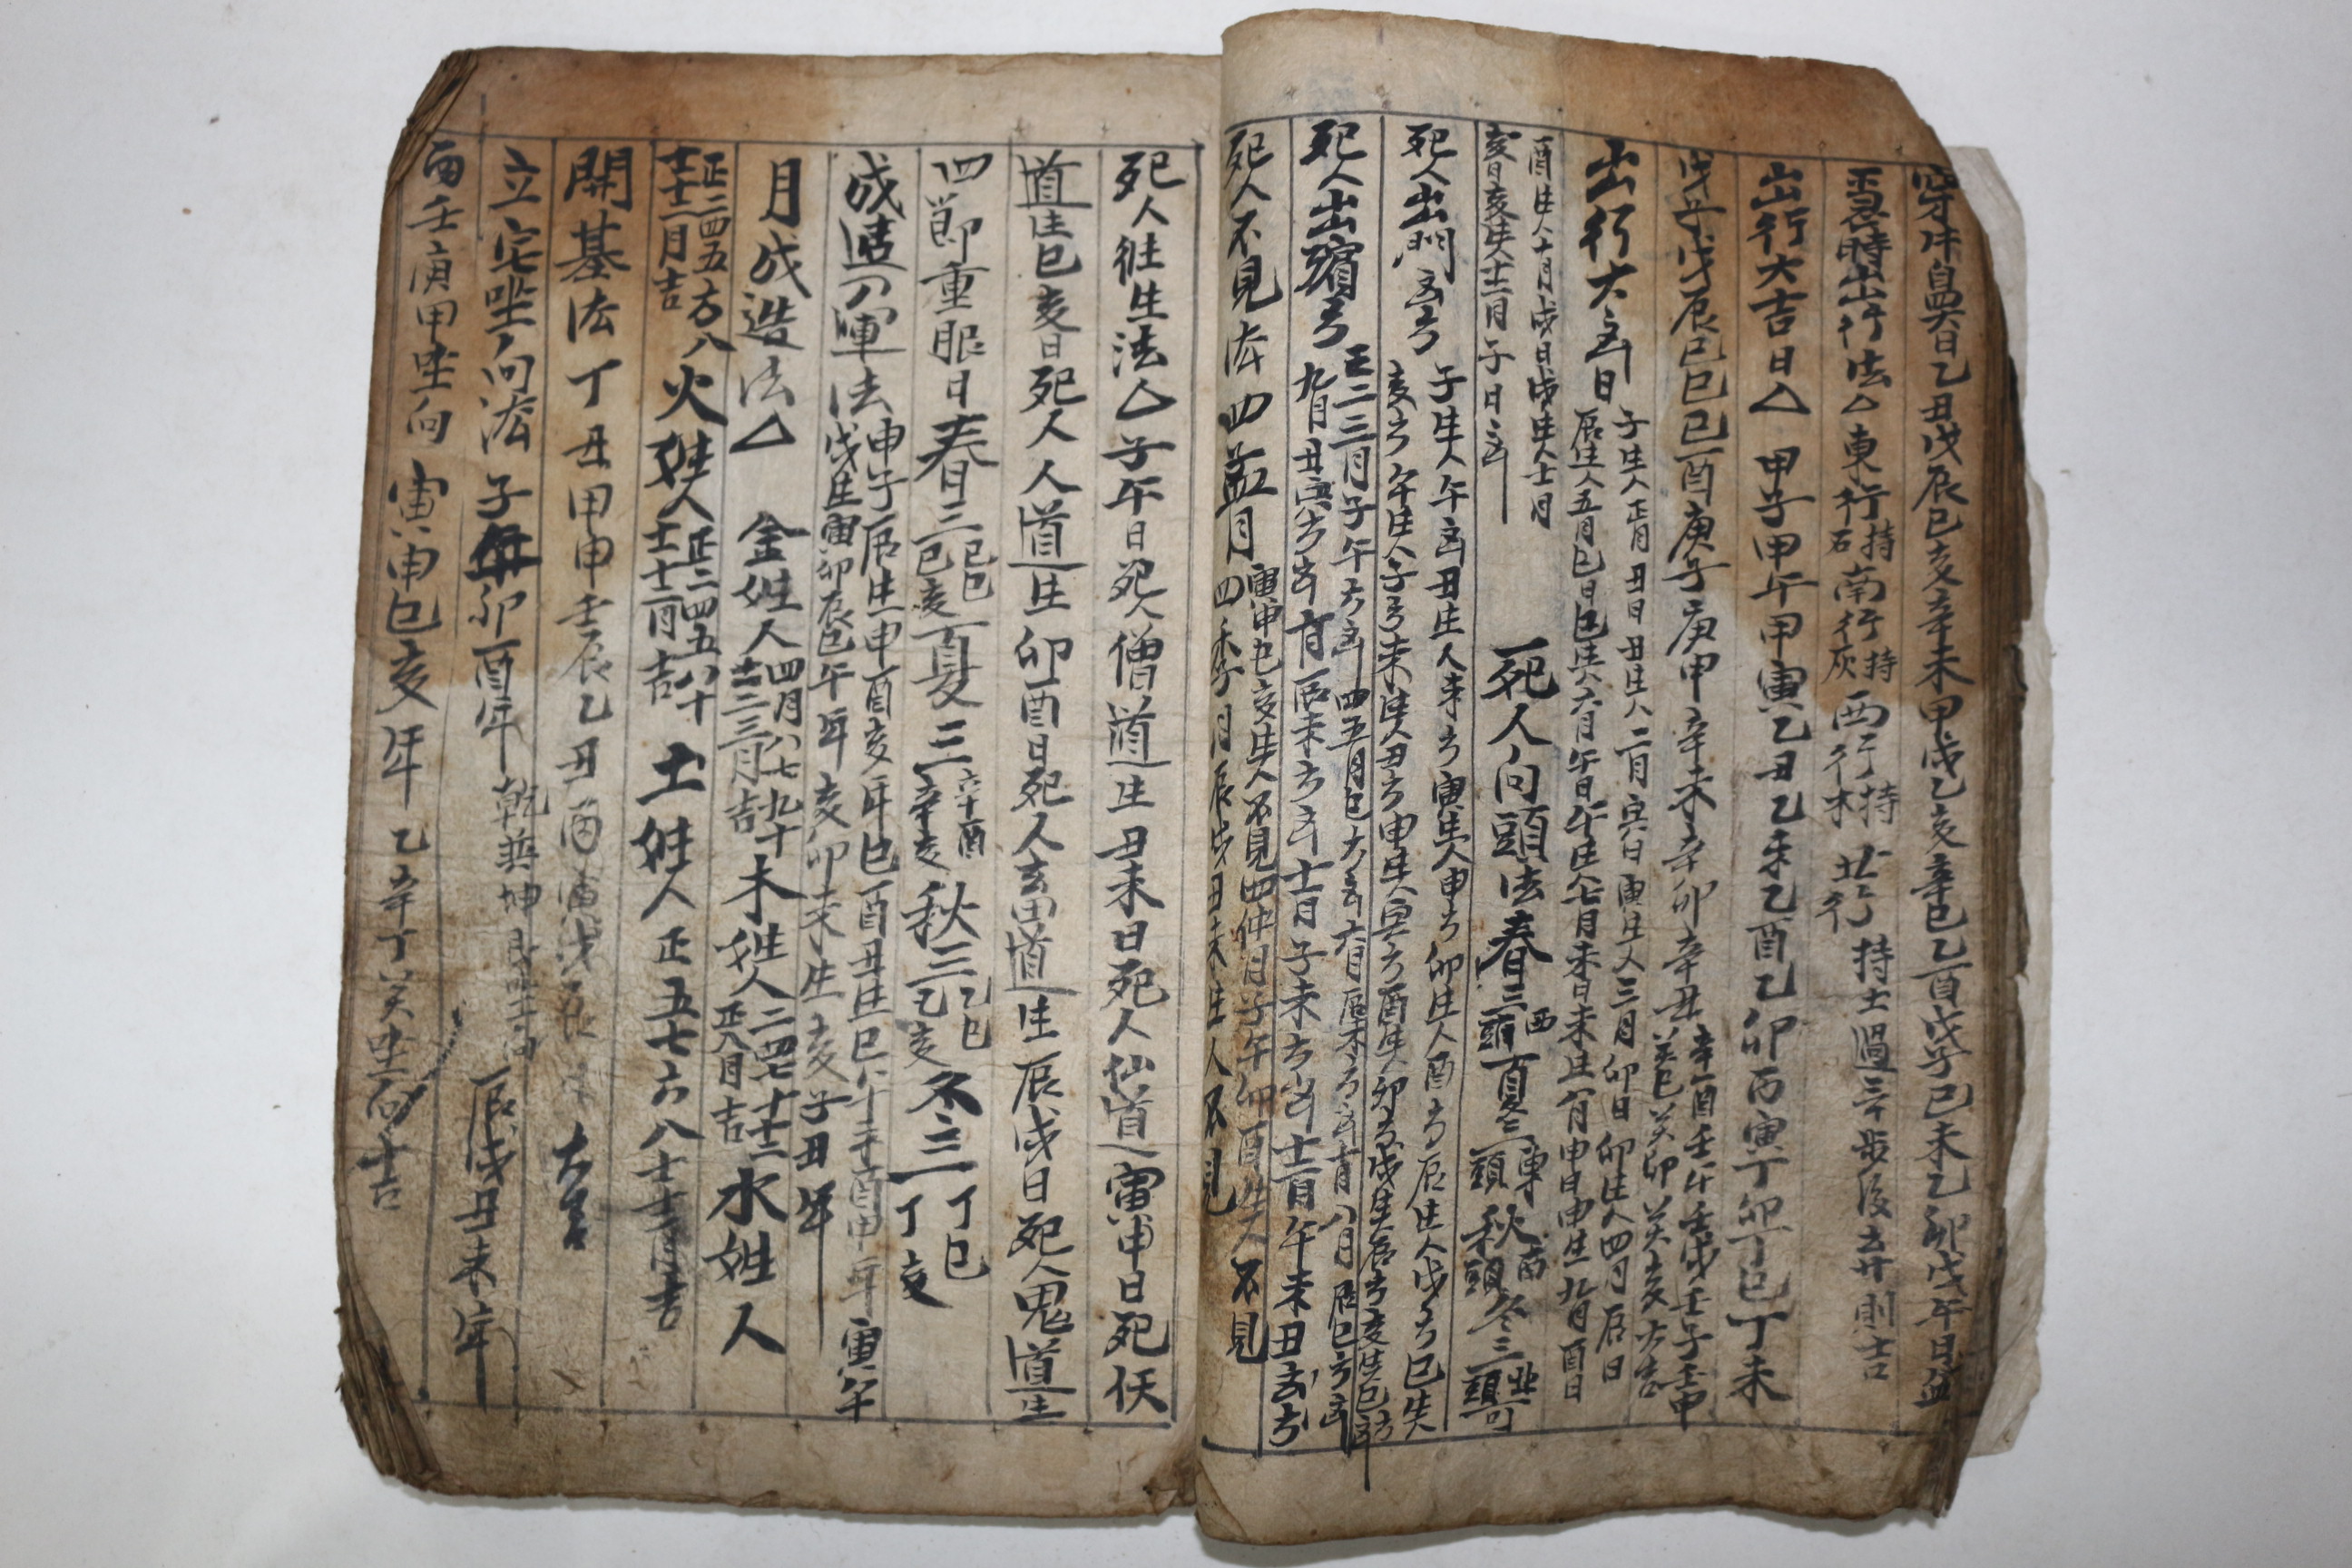 穿牛鼻日乙丑戊辰己亥辛未甲戌乙亥辛巳乙酉戊子己未乙卯戊午日
急時出行法△東行持石南行持灰西行持木北行持土過三步後去則吉
出行大吉日△甲子甲午甲寅乙丑乙未乙酉乙卯丙寅丁卯丁巳丁未
戊子戊辰己巳己酉庚子庚申辛未辛卯辛丑辛酉壬午壬戌壬子壬申癸巳癸卯癸亥大吉
出行大凶日子生人正月丑日丑生人二月寅日寅生人三月卯日卯生人四月辰日
辰生人五月巳日巳生六月午日午生人七月未日未生八月申日申生九月酉日
酉生人十月戌日戌生人十一月
亥日亥生十二月子日凶
死人向頭法春三西頭夏三東頭秋三南頭冬三北頭可
死人出門凶方子生人午方凶丑生人未方寅生人申方卯生人酉方辰生人戌方巳生
亥方午生人子方未生人丑方申生人寅方酉生人卯方戌生辰方亥生巳方凶
死人出殯方正二三月子午方凶四五月巳方凶六月辰未方凶七月八月辰巳方凶
九月丑寅方凶十月辰未方凶十一月子未方凶十二月午未丑亥方
死人不見法四孟月寅申巳亥生人不見四仲月子午卯酉生人不見
四季月辰戌丑未生人不見
死人往生法△子午日死人僧道生丑未日死人仙道寅申日死人
道生巳亥日死人人道生卯酉日死人畜道生辰戌日死人鬼道生
四節重服日春三己巳己亥夏三辛酉辛亥秋三乙巳乙亥冬三丁巳丁亥
成造運法申子辰生申酉亥年巳酉丑生巳午酉申年寅午
戌生寅卯辰巳午年亥卯未生亥子丑年
月成造法△金姓人四月八七九十十二三月吉木姓人二四七十十二正八月吉水姓人
正二四五六八十二月吉火姓人正二四五八十十一十二月吉土姓人正五七六八十一十二月吉
開基法丁丑甲申壬辰乙丑丙寅大吉
立宅坐向法子午卯酉年乾巽坤艮坐向辰戌丑未年
丙壬庚甲坐向寅申巳亥年乙辛丁癸坐向吉